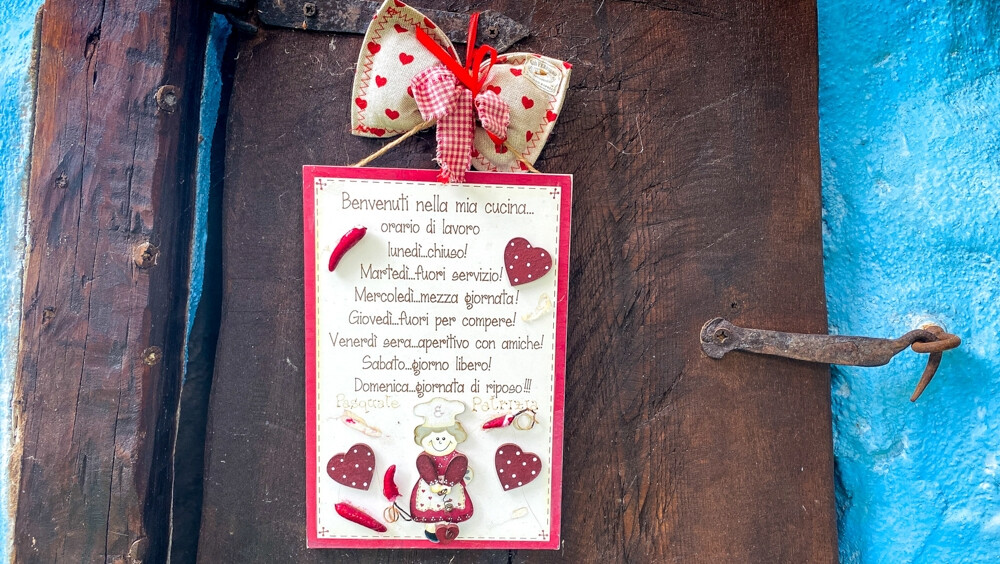 Benvenuti nella mia cucina...
orario di lavoro
lunedì...chiuso!
Martedì...fuori servizio!
Mercoledì...mezza giornata!
Giovedì...fuori per compere!
Venerdì sera...aperitivo con amiche!
Sabato...giorno libero!
Domenica...giornata di riposo!!!
Pasquale & Patrizia